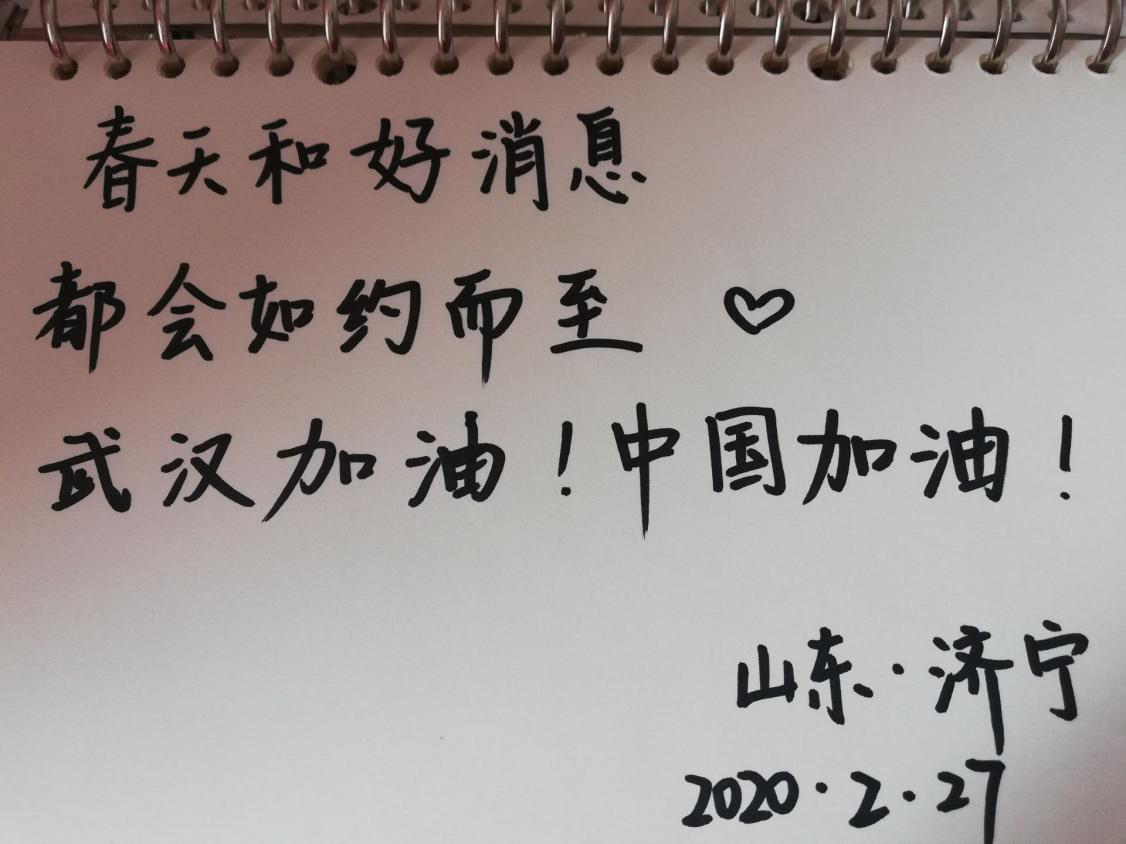 春天和好消息
都会如约而至 ♡
武汉加油！中国加油！
山东·济宁
2020·2·27